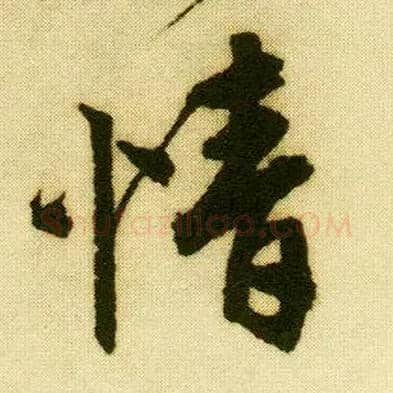 情
shufaziliao.com